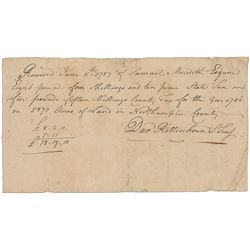 Received June 11th 1787 of Samuel Meredith Esquire
Eight pounds four Shillings and ten pence State Tax and
five pounds fifteen Shillings County Tax for the Year 1786
on 5870 Acres of Land in Northampton County
£ 8.4.10
5.15
£ 13.19.10
Dav. Rittenhouse Treasr